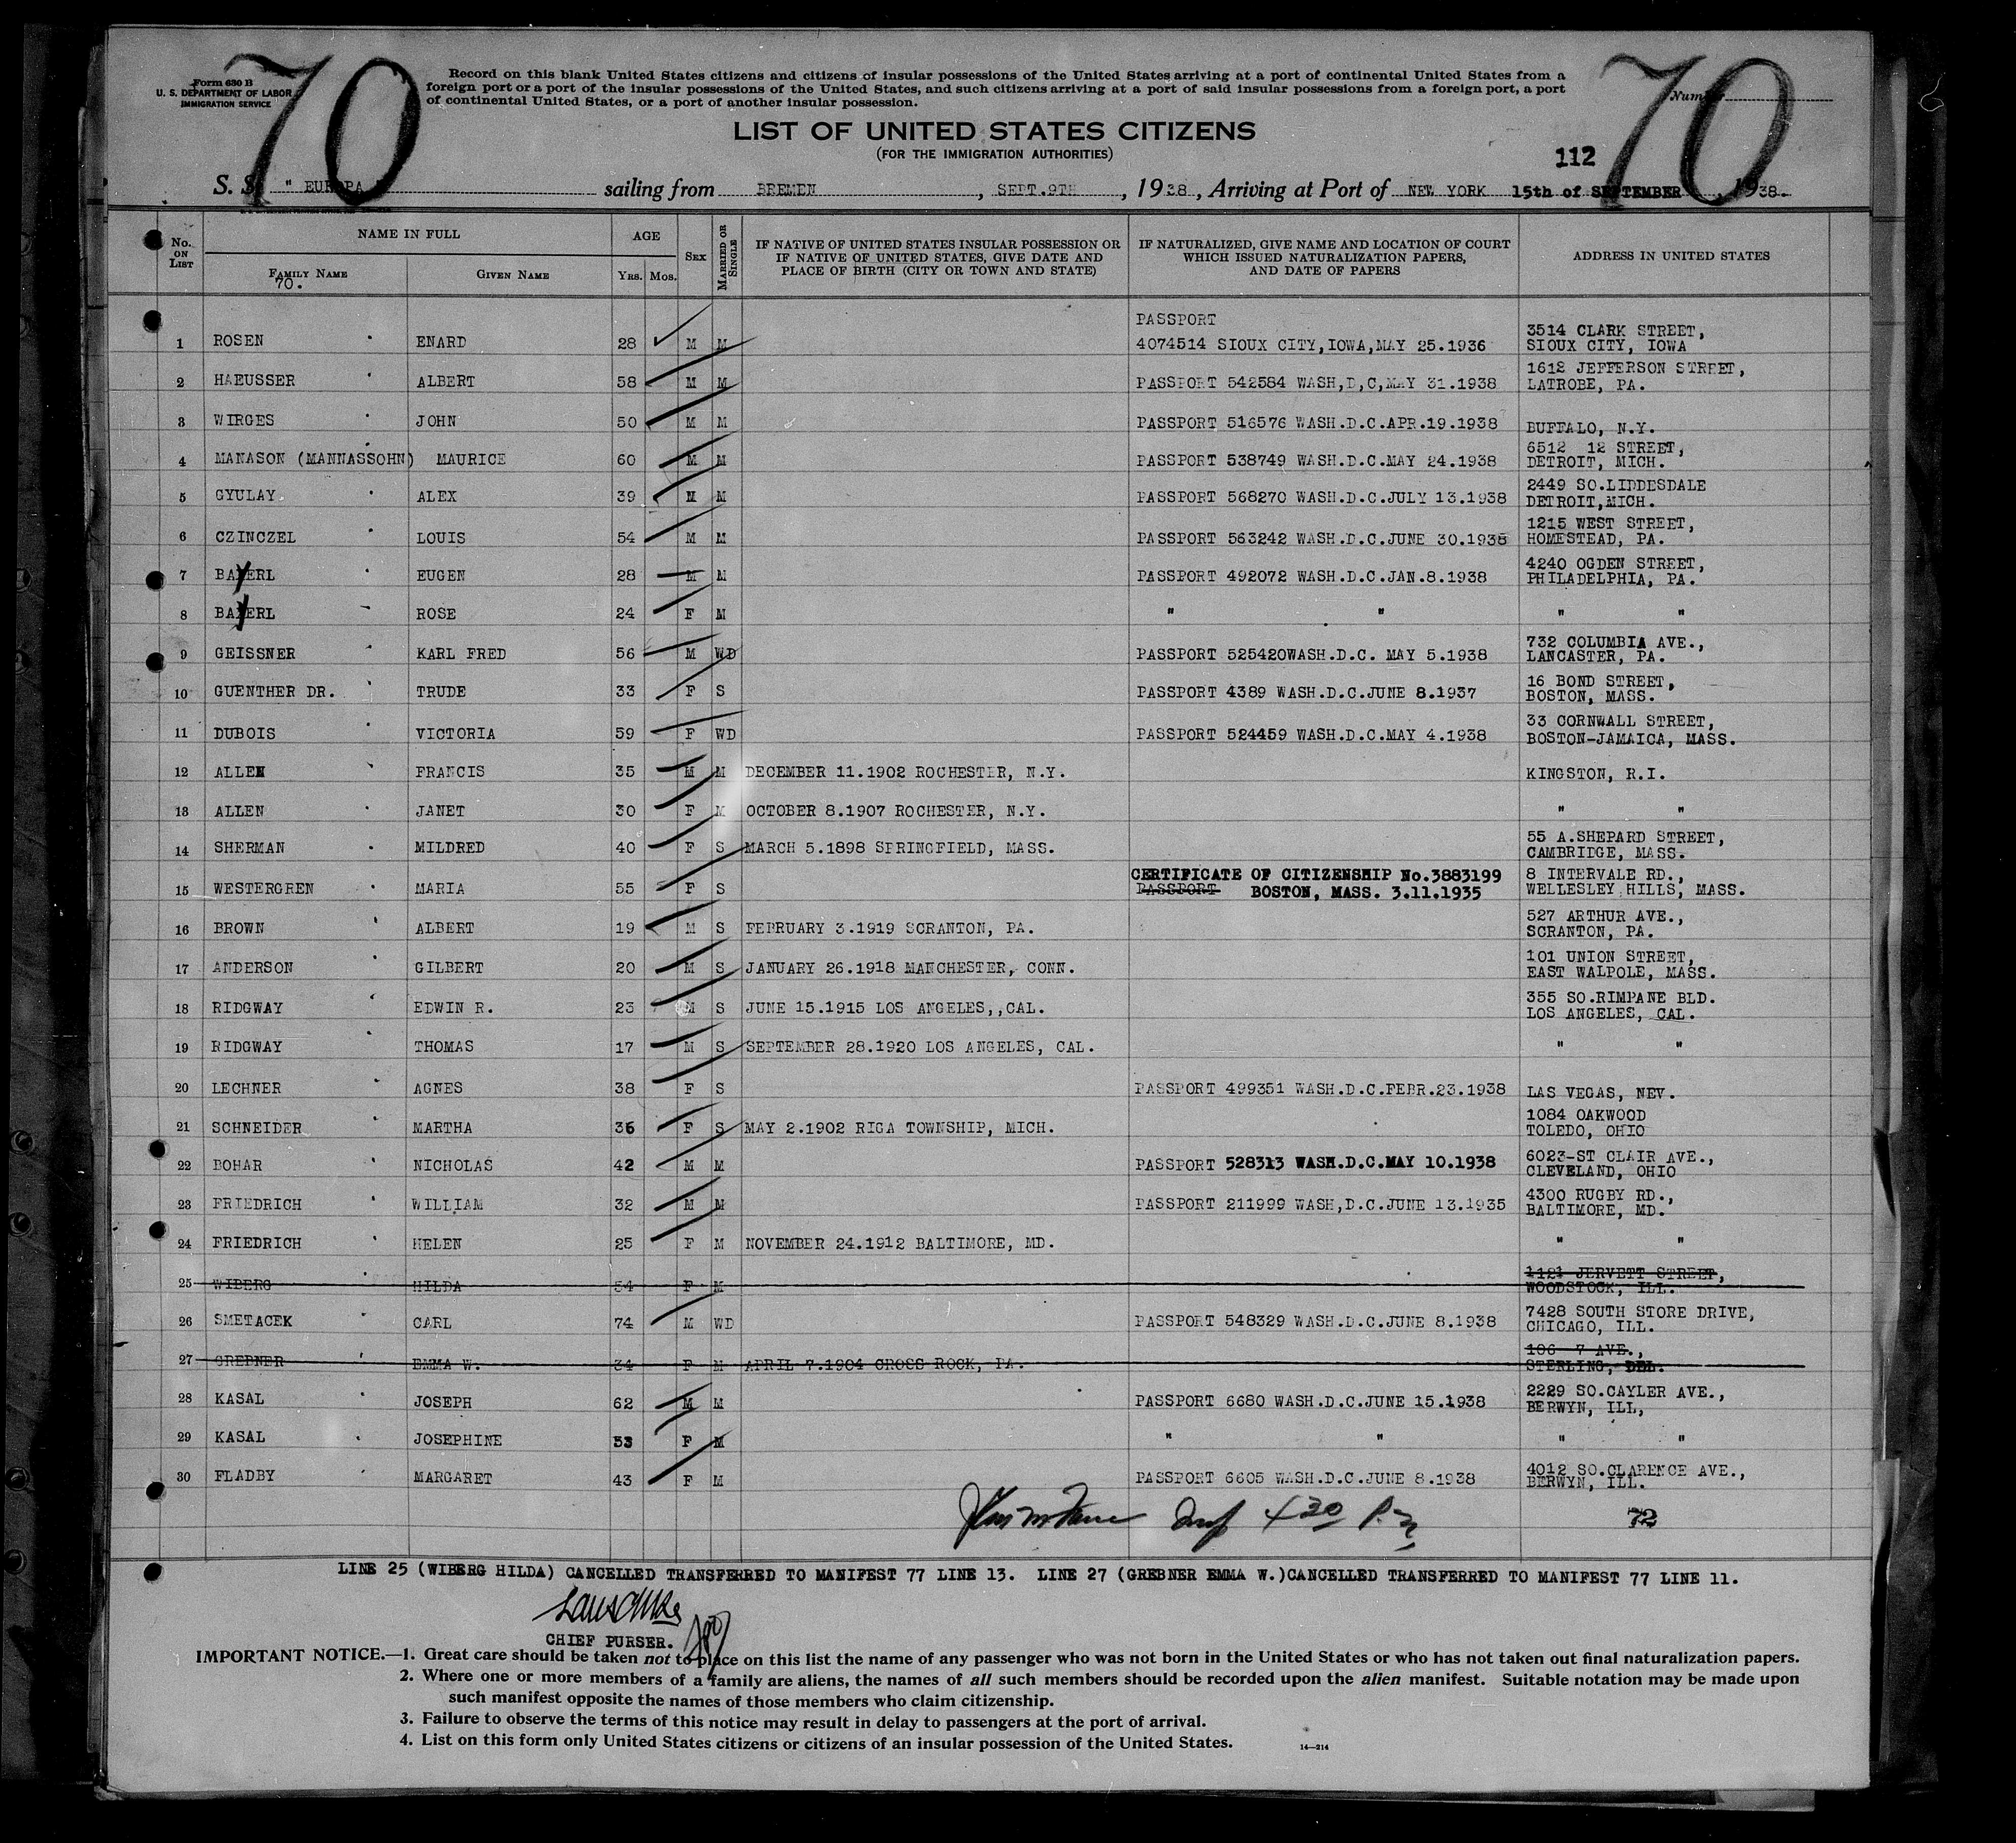 70
70
Form 630 B
U. S. DEPARTMENT OF LABOR
IMMIGRATION SERVICE
Record on this blank United States citizens and citizens of insular possessions of the United States arriving at a port of continental United States from a
foreign port or a port of the insular possessions of the United States, and such citizens arriving at a port of said insular possessions from a foreign port, a port
of continental United States, or a port of another insular possession.
Number
LIST OF UNITED STATES CITIZENS
(FOR THE IMMIGRATION AUTHORITIES)
112
S. S. " EUROPA " sailing from BREMEN , SEPT.9TH , 1938 , Arriving at Port of NEW YORK 15th of SEPTEMBER , 1938.
No. ON LIST NAME IN FULL AGE SEX MARRIED OR SINGLE IF NATIVE OF UNITED STATES INSULAR POSSESSION OR IF NATIVE OF UNITED STATES, GIVE DATE AND PLACE OF BIRTH (CITY OR TOWN AND STATE) IF NATURALIZED, GIVE NAME AND LOCATION OF COURT WHICH ISSUED NATURALIZATION PAPERS, AND DATE OF PAPERS ADDRESS IN UNITED STATES
FAMILY NAME GIVEN NAME YRS. MOS.
70.
PASSPORT
1 ROSEN ENARD 28 M M 4074514 SIOUX CITY,IOWA,MAY 25.1936 3514 CLARK STREET, SIOUX CITY, IOWA
2 HAEUSSER ALBERT 58 M M PASSPORT 542584 WASH,D,C,MAY 31.1938 1612 JEFFERSON STREET, LATROBE, PA.
3 WIRGES JOHN 50 M M PASSPORT 516576 WASH.D.C.APR.19.1938 BUFFALO, N.Y.
4 MANASON (MANNASSOHN) MAURICE 60 M M PASSPORT 538749 WASH.D.C.MAY 24.1938 6512 12 STREET, DETROIT, MICH.
5 GYULAY ALEX 39 M M PASSPORT 568270 WASH.D.C.JULY 13.1938 2449 SO.LIDDESDALE DETROIT,MICH.
6 CZINCZEL LOUIS 54 M M PASSPORT 563242 WASH.D.C.JUNE 30.1938 1215 WEST STREET, HOMESTEAD, PA.
7 BAYERL EUGEN 28 M M PASSPORT 492072 WASH.D.C.JAN.8.1938 4240 OGDEN STREET, PHILADELPHIA, PA.
8 BAYERL ROSE 24 F M " " " "
9 GEISSNER KARL FRED 56 M WD PASSPORT 525420WASH.D.C. MAY 5.1938 732 COLUMBIA AVE., LANCASTER, PA.
10 GUENTHER DR. TRUDE 33 F S PASSPORT 4389 WASH.D.C.JUNE 8.1937 16 BOND STREET, BOSTON, MASS.
11 DUBOIS VICTORIA 59 F WD PASSPORT 524459 WASH.D.C.MAY 4.1938 33 CORNWALL STREET, BOSTON-JAMAICA, MASS.
12 ALLEN FRANCIS 35 M M DECEMBER 11.1902 ROCHESTER, N.Y. KINGSTON, R.I.
13 ALLEN JANET 30 F M OCTOBER 8.1907 ROCHESTER, N.Y. " "
14 SHERMAN MILDRED 40 F S MARCH 5.1898 SPRINGFIELD, MASS. 55 A.SHEPARD STREET, CAMBRIDGE, MASS.
15 WESTERGREN MARIA 55 F S CERTIFICATE OF CITIZENSHIP No.3883199 PASSPORT BOSTON, MASS. 3.11.1935 8 INTERVALE RD., WELLESLEY HILLS, MASS.
16 BROWN ALBERT 19 M S FEPRUARY 3.1919 SCRANTON, PA. 527 ARTHUR AVE., SCRANTON, PA.
17 ANDERSON GILBERT 20 M S JANUARY 26.1918 MANCHESTER, CONN. 101 UNION STREET, EAST WALPOLE, MASS.
18 RIDGWAY EDWIN R. 23 M S JUNE 15.1915 LOS ANGELES,,CAL. 355 SO.RIMPANE BLD. LOS ANGELES, CAL.
19 RIDGWAY THOMAS 17 M S SEPTEMBER 28.1920 LOS ANGELES, CAL. " "
20 LECHNER AGNES 38 F S PASSPORT 499351 WASH.D.C.FEBR.23.1938 LAS VEGAS, NEV.
21 SCHNEIDER MARTHA 36 F S MAY 2.1902 RIGA TOWNSHIP, MICH. 1084 OAKWOOD TOLEDO, OHIO
22 BOHAR NICHOLAS 42 M M PASSPORT 528313 WASH.D.C.MAY 10.1938 6023-ST CLAIR AVE., CLEVELAND, OHIO
23 FRIEDRICH WILLIAM 32 M M PASSPORT 211999 WASH,D.C.JUNE 13.1935 4300 RUGBY RD., BALTIMORE, MD.
24 FRIEDRICH HELEN 25 F M NOVEMBER 24.1912 BALTIMORE, MD. " "
25 WIBERG HILDA 54 F M 1121 JERVETT STREET, WOODSTOCK, ILL.
26 SMETACEK CARL 74 M WD PASSPORT 548329 WASH.D.C.JUNE 8.1938 7428 SOUTH STORE DRIVE, CHICAGO, ILL.
27 GREBNER EMMA W. 34 F M APRIL 7.1904 CROSS ROCK, PA. 106 7 AVE., STERLING, DEL.
28 KASAL JOSEPH 62 M M PASSPORT 6680 WASH.D.C.JUNE 15.1938 2229 SO.CAYLER AVE., BERWYN, ILL,
29 KASAL JOSEPHINE 53 F M " " " "
30 FLADBY MARGARET 43 F M PASSPORT 6605 WASH.D.C.JUNE 8.1938 4012 SO.CLARENCE AVE., BERWYN, ILL.
430 P.M
72
LINE 25 (WIBERG HILDA) CANCELLED TRANSFERRED TO MANIFEST 77 LINE 13. LINE 27 (GREBNER EMMA W.)CANCELLED TRANSFERRED TO MANIFEST 77 LINE 11.
CHIEF PURSER.
IMPORTANT NOTICE.—1. Great care should be taken not to place on this list the name of any passenger who was not born in the United States or who has not taken out final naturalization papers.
2. Where one or more members of a family are aliens, the names of all such members should be recorded upon the alien manifest. Suitable notation may be made upon
such manifest opposite the names of those members who claim citizenship.
3. Failure to observe the terms of this notice may result in delay to passengers at the port of arrival.
4. List on this form only United States citizens or citizens of an insular possession of the United States.
14—214